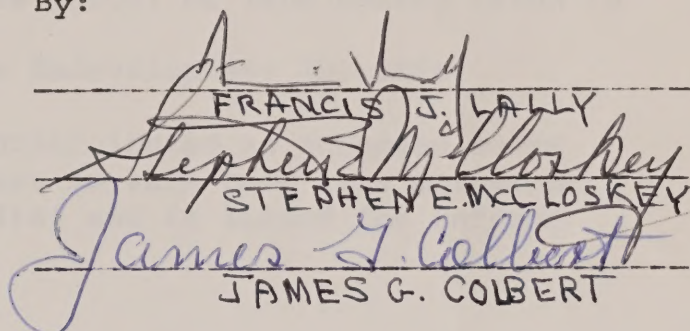 By:
FRANCIS J. LALLY
Stephen E McCloskey
STEPHEN E. MCCLOSKEY
James G. Colbert
JAMES G. COLBERT